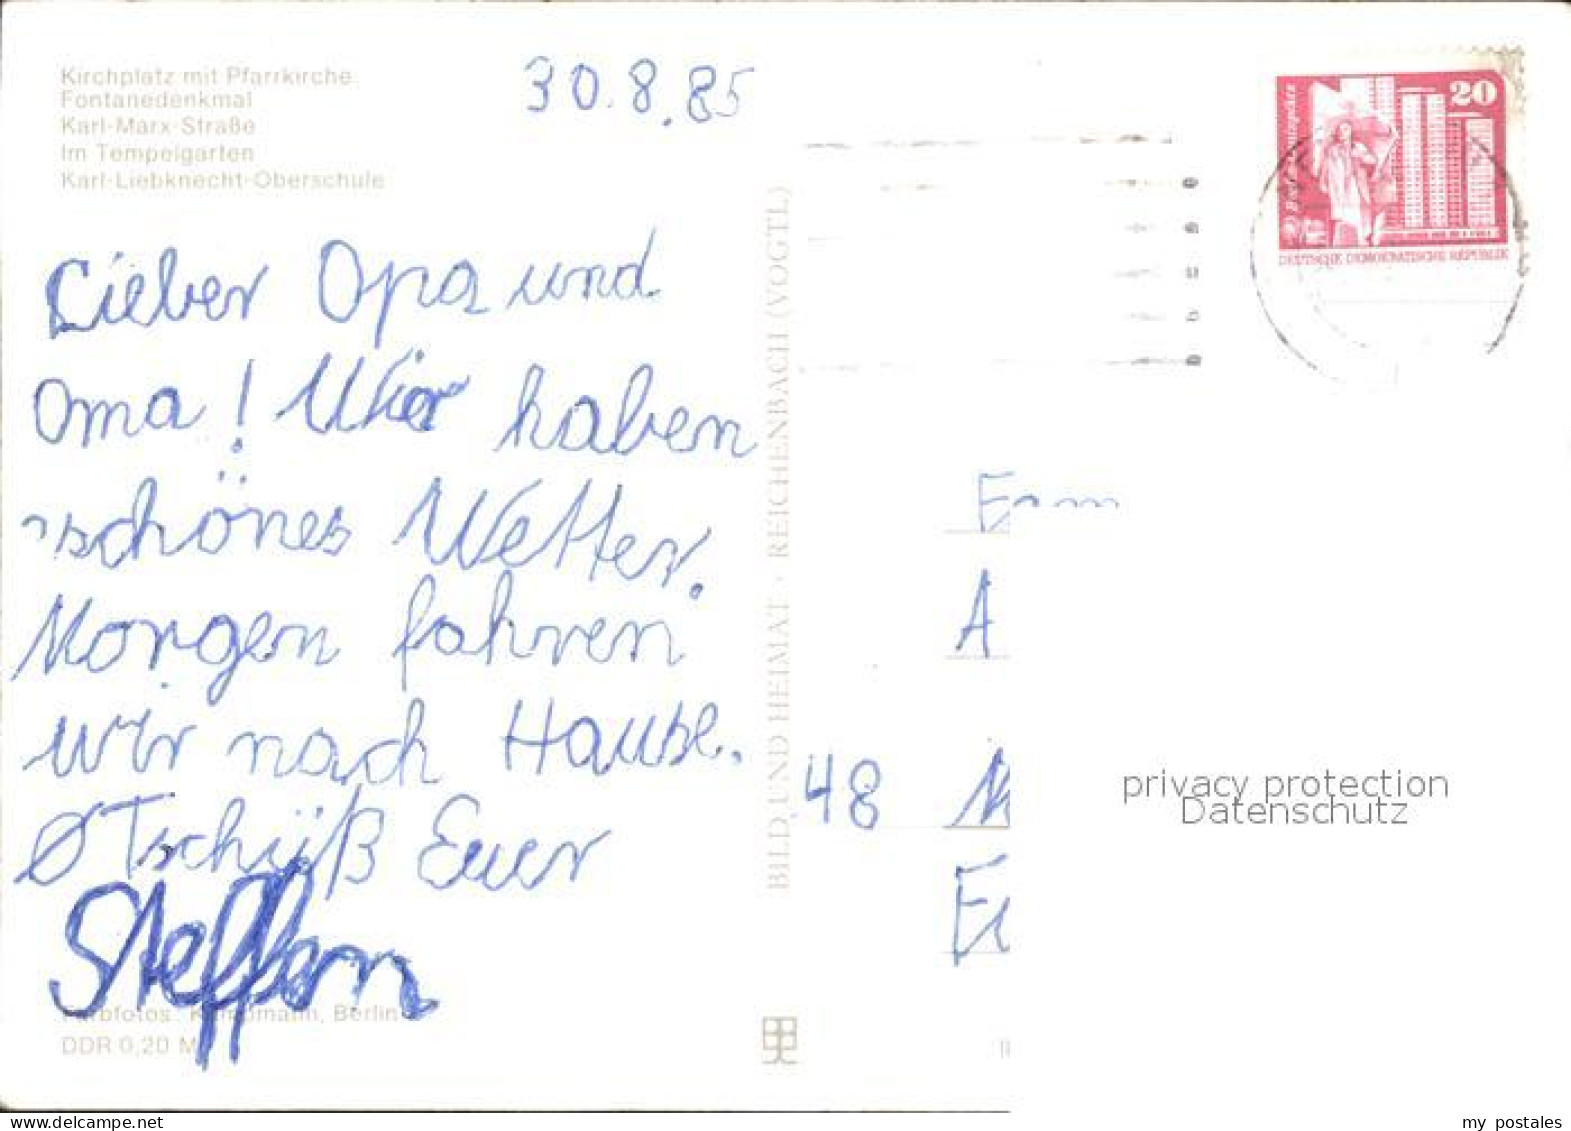 Kirchplatz mit Pfarrkirche
Fontanedenkmal
Karl-Marx-Straße
Im Tempelgarten
Karl-Liebknecht-Oberschule
30.8.85
Lieber Opa und
Oma! Wir haben
schönes Wetter.
Morgen fahren
wir nach Hause.
Tschüß Euer
Steffen
Farbfotos: Kampmann, Berlin
DDR 0,20 M
BILD UND HEIMAT · REICHENBACH (VOGTL)
20
DEUTSCHE DEMOKRATISCHE REPUBLIK
Fam
A
48 M
privacy protection
Datenschutz
my postales